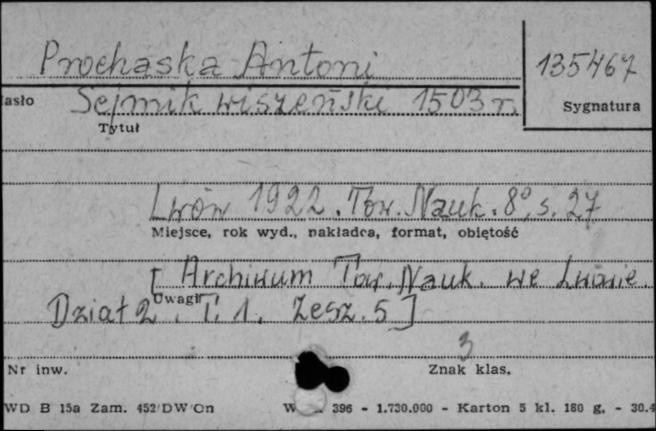 Prochaska Antoni 135467
asło Sejmik wiszeński 1503 r. Sygnatura
Tytuł
Lwów 1922. Tow. Nauk. 8°, s. 27
Miejsce, rok wyd., nakładca, format, objętość
[ Archiwum Tow. Nauk. we Lwowie.
Uwagi
Dział 2. T. 1. Zesz. 5 ]
3
Nr inw. Znak klas.
WD B 15a Zam. 452/DW/On W 396 - 1.730.000 - Karton 5 kl. 180 g. - 30.4